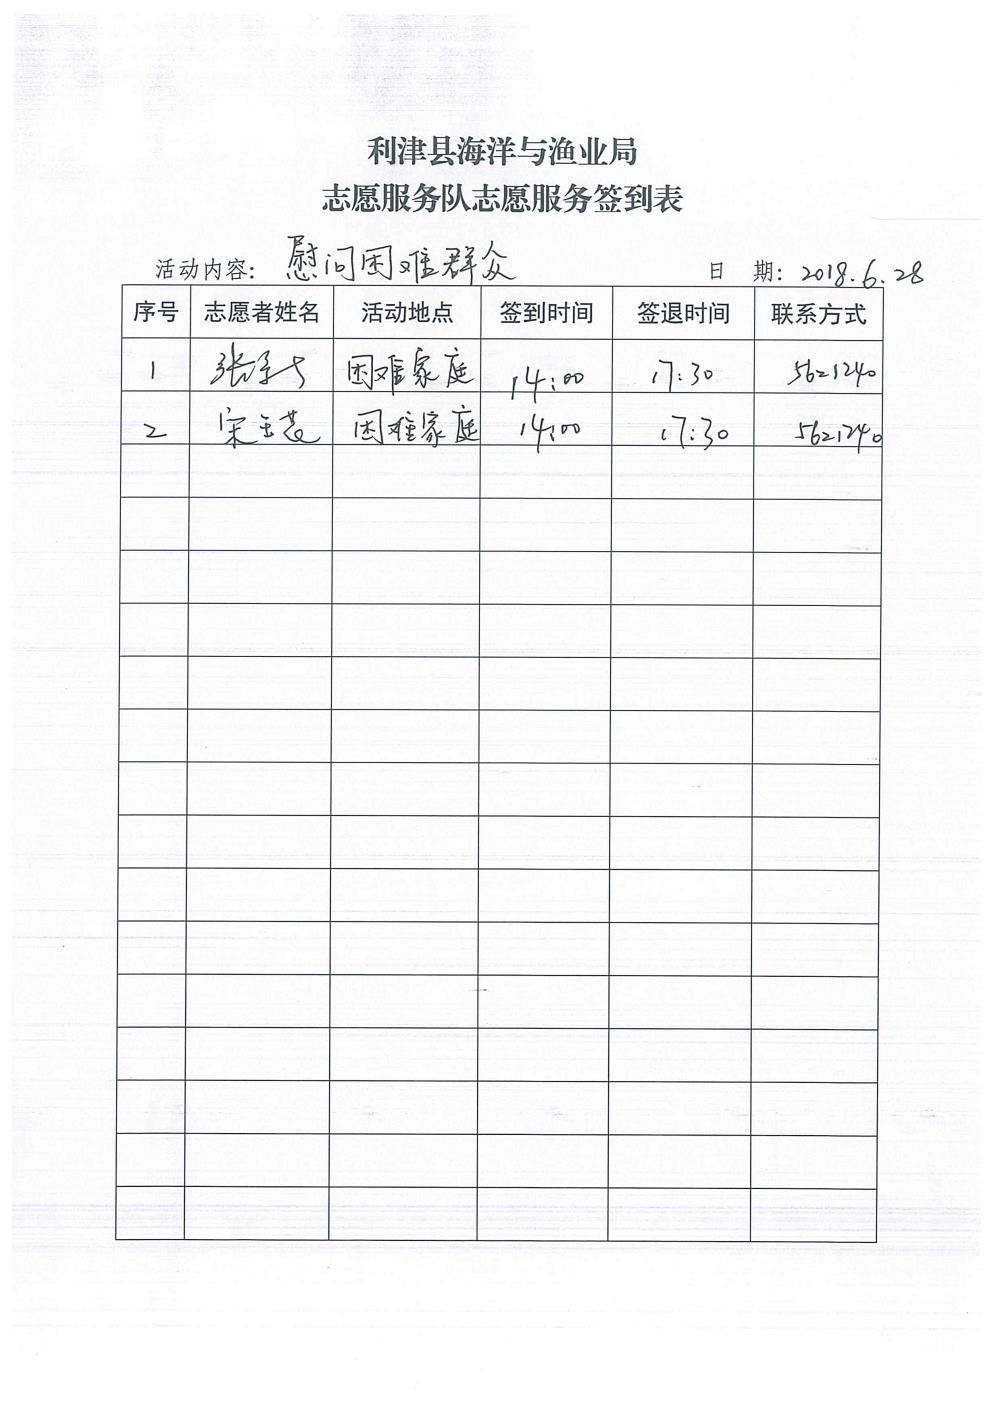 利津县海洋与渔业局
志愿服务队志愿服务签到表
活动内容：慰问困难群众 日 期：2018.6.28
序号 志愿者姓名 活动地点 签到时间 签退时间 联系方式
1 张 困难家庭 14:00 17:30 5621240
2 宋玉慧 困难家庭 14:00 17:30 5621240